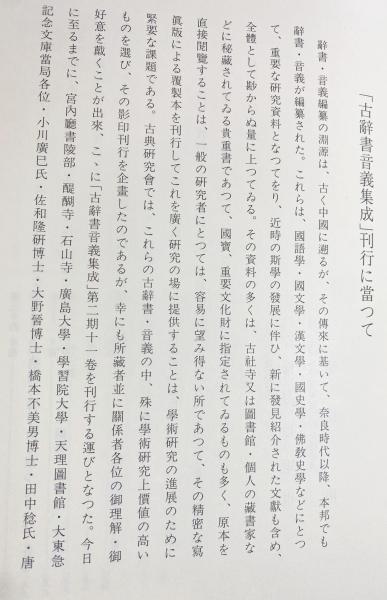 「古辭書音義集成」刊行に當つて
辭書・音義編纂の淵源は、古く中國に遡るが、その傳來に基いて、奈良時代以降、本邦でも
辭書・音義が編纂された。これらは、國語學・國文學・漢文學・國史學・佛敎史學などにとつ
て、重要な研究資料となつてをり、近時の斯學の發展に伴ひ、新に發見紹介された文獻も含め、
全體として尠からぬ量に上つてゐる。その資料の多くは、古社寺又は圖書館・個人の藏書家な
どに秘藏されてゐる貴重書であつて、國寶、重要文化財に指定されてゐるものも多く、原本を
直接閲覽することは、一般の研究者にとつては、容易に望み得ない所であつて、その精密な寫
眞版による覆製本を刊行してこれを廣く研究の場に提供することは、學術研究の進展のために
緊要な課題である。古典研究會では、これらの古辭書・音義の中、殊に學術研究上價値の高い
ものを選び、その影印刊行を企畫したのであるが、幸にも所藏者並に關係者各位の御理解・御
好意を戴くことが出來、こゝに「古辭書音義集成」第二期十一卷を刊行する運びとなつた。今日
に至るまでに、宮内廳書陵部・醍醐寺・石山寺・廣島大學・學習院大學・天理圖書館・大東急
記念文庫當局各位・小川廣巳氏・佐和隆硏博士・大野晉博士・橋本不美男博士・田中稔氏・唐